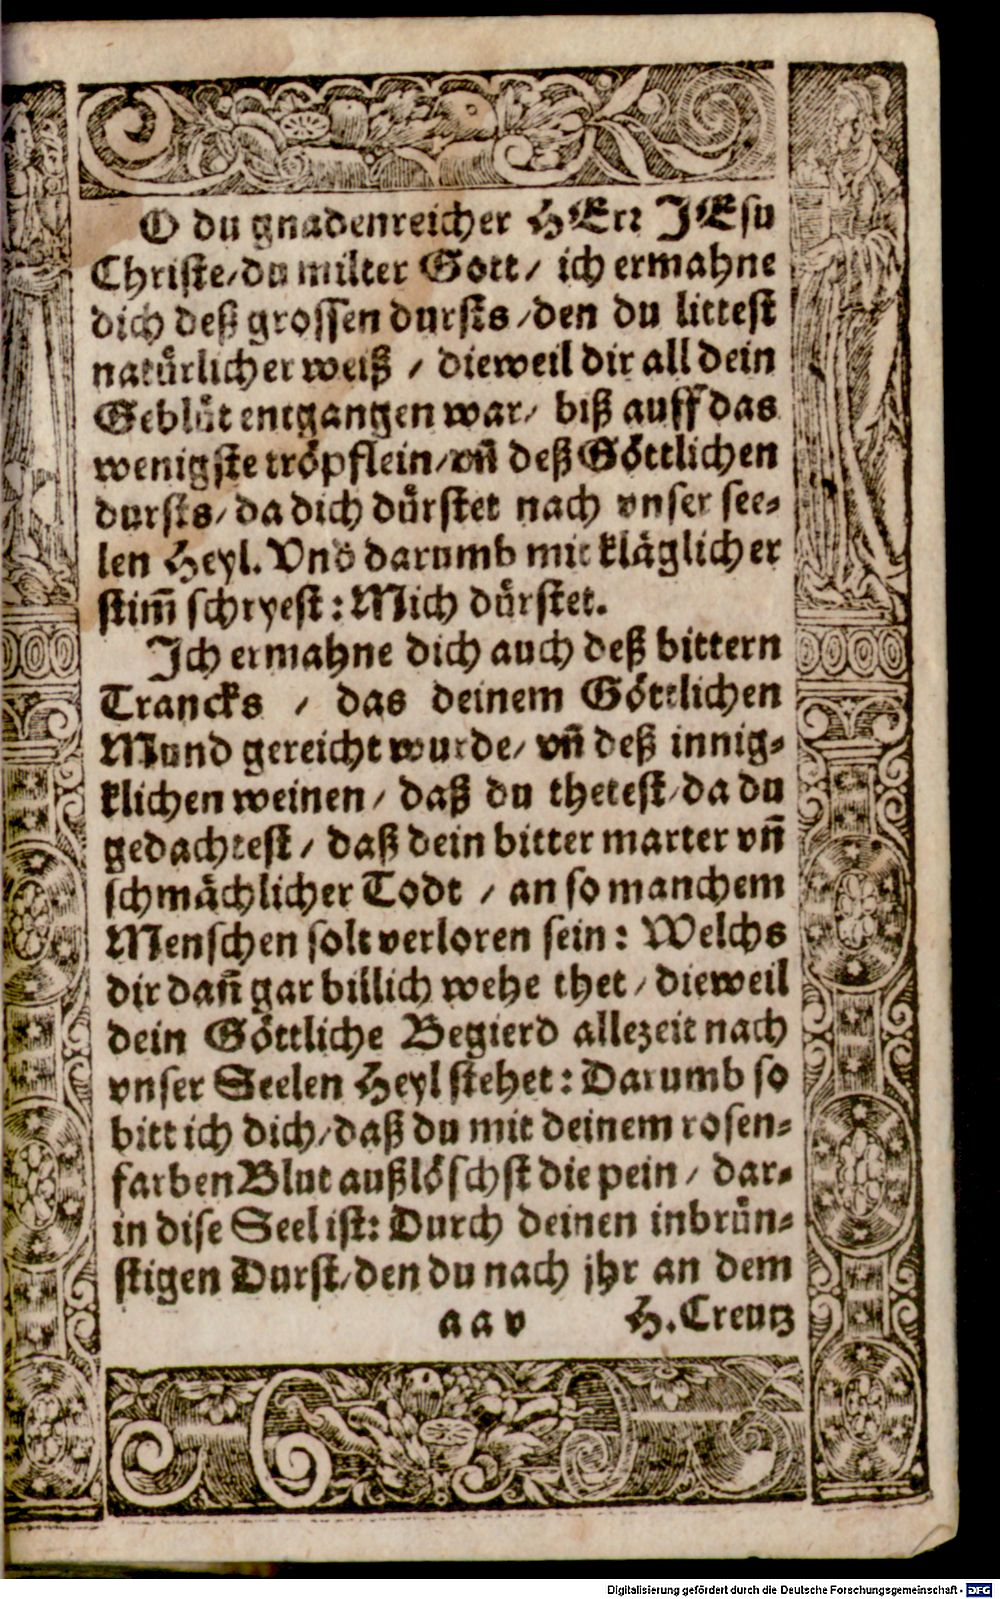 O du gnadenreicher HErr JEsu
Christe/du milter Gott/ ich ermahne
dich deß grossen dursts/den du littest
natürlicher weiß / dieweil dir all dein
Geblüt entgangen war/ biß auff das
wenigste tröpflein/vn̄ deß Göttlichen
dursts/da dich dürstet nach vnser see-
len Heyl. Vnd darumb mit kläglicher
stim̄ schryest: Mich dürstet.
Ich ermahne dich auch deß bittern
Trancks / das deinem Göttlichen
Mund gereicht wurde/ vn̄ deß innig-
klichen weinen/ daß du thetest/da du
gedachtest/ daß dein bitter marter vn̄
schmächlicher Todt / an so manchem
Menschen solt verloren sein: Welchs
dir dan̄ gar billich wehe thet/ dieweil
dein Göttliche Begierd allezeit nach
vnser Seelen Heyl stehet: Darumb so
bitt ich dich/daß du mit deinem rosen-
farben Blut außlöschst die pein/ dar-
in dise Seel ist: Durch deinen inbrün-
stigen Durst/den du nach jhr an dem
a a v H. Creutz
Digitalisierung gefördert durch die Deutsche Forschungsgemeinschaft - DFG